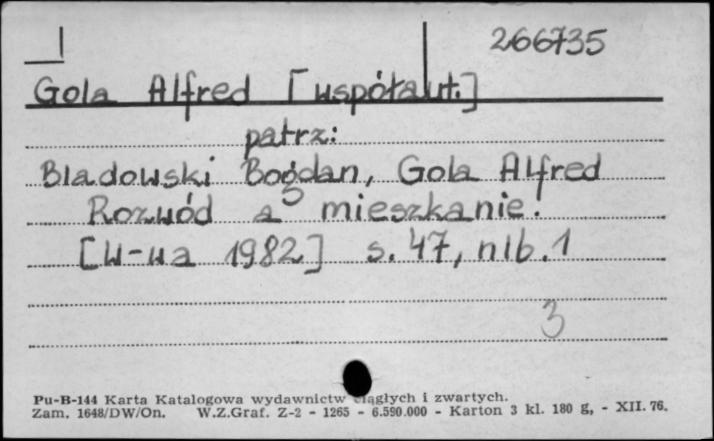 266735
Gola Alfred [współaut.]
patrz:
Bladowski Bogdan, Gola Alfred
Rozwód a mieszkanie.
[W-wa 1982] s. 47, nlb. 1
3
Pu-B-144 Karta Katalogowa wydawnictw ciągłych i zwartych.
Zam. 1648/DW/On. W.Z.Graf. Z-2 - 1265 - 6.590.000 - Karton 3 kl. 180 g, - XII. 76.